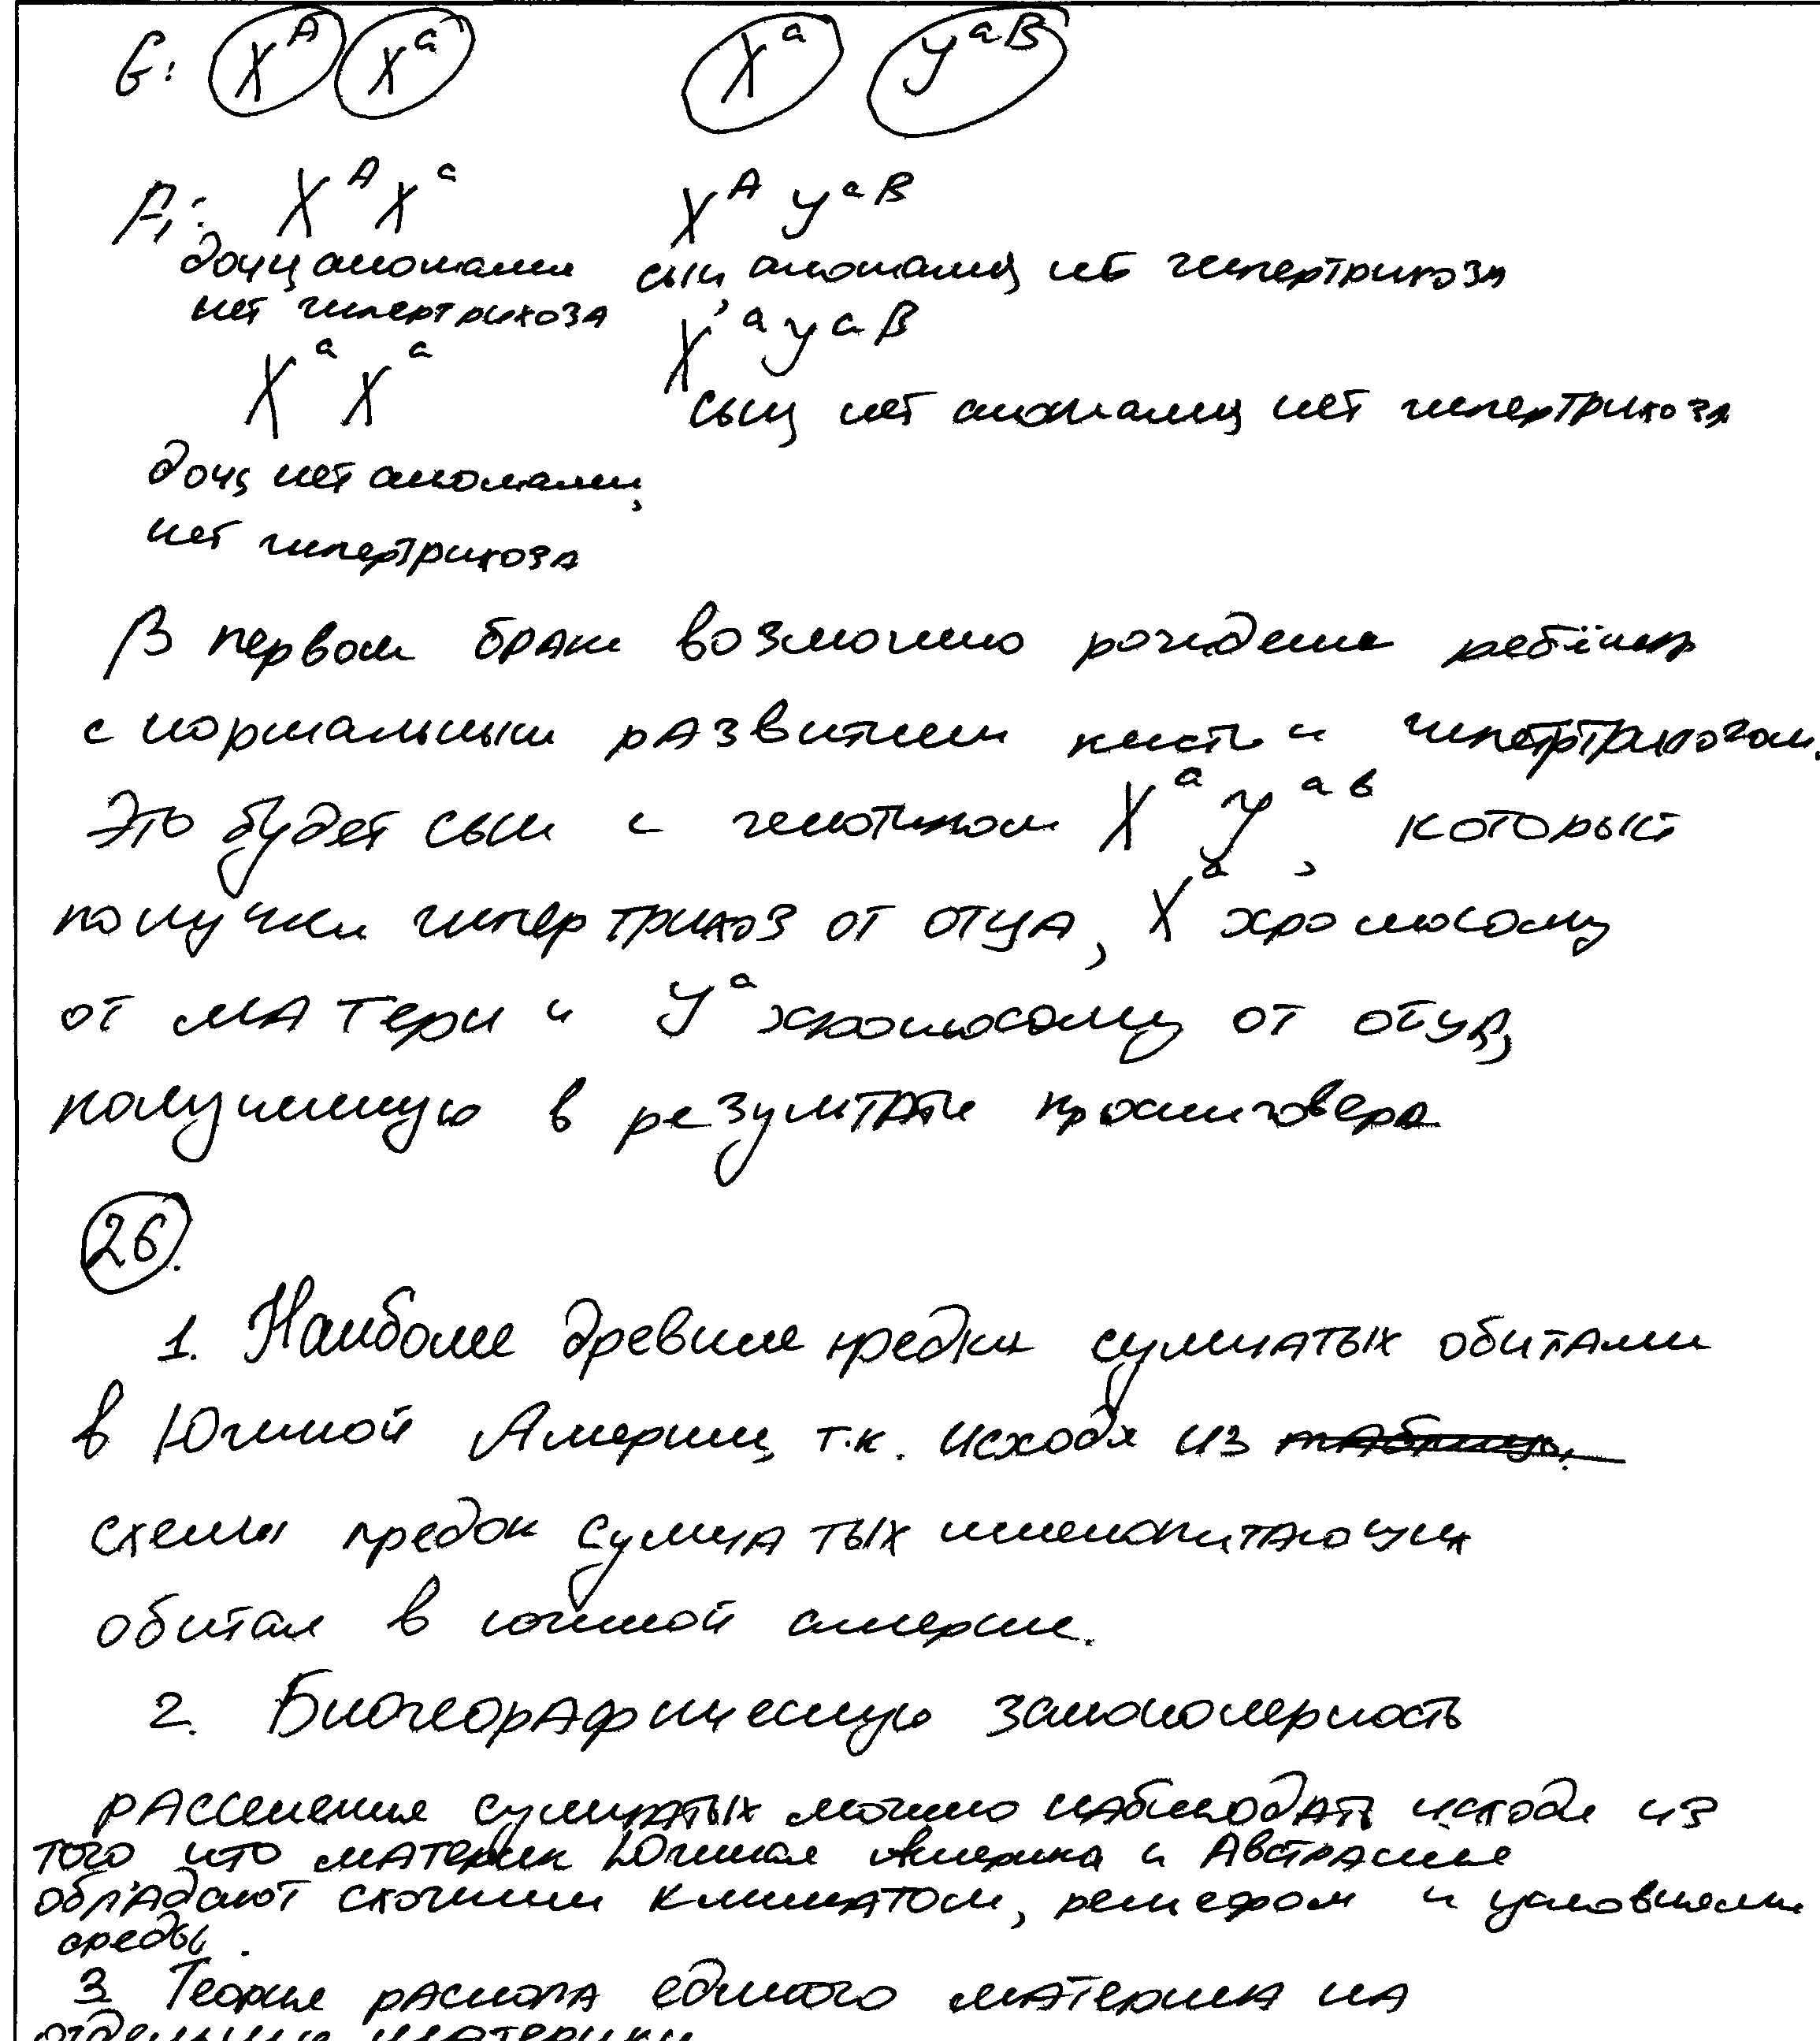 G: X^A X^a X^a Y^aB
F₁: X^A X^a X^A Y^aB
дочь аномалия сын, аномалия, нет гипертрихоза
нет гипертрихоза X^a Y^aB
X^a X^a
сын, нет аномалии, нет гипертрихоза
дочь нет аномалии,
нет гипертрихоза
В первом браке возможно рождение ребёнка
с нормальным развитием кисти и гипертрихозом.
Это будет сын с генотипом X^a Y^ab, который
получил гипертрихоз от отца, X^a хромосому
от матери и Y^a хромосому от отца,
полученную в результате кроссинговера
26.
1. Наиболее древние предки сумчатых обитали
в Южной Америке, т.к. исходя из
схемы предок сумчатых млекопитающих
обитал в южной америке.
2. Биогеографическую закономерность
расселения сумчатых можно наблюдать исходя из
того что материк Южная Америка и Австралия
обладают схожим климатом, рельефом и условиями
среды.
3 Теория раскола единого материка на
отдельные материки